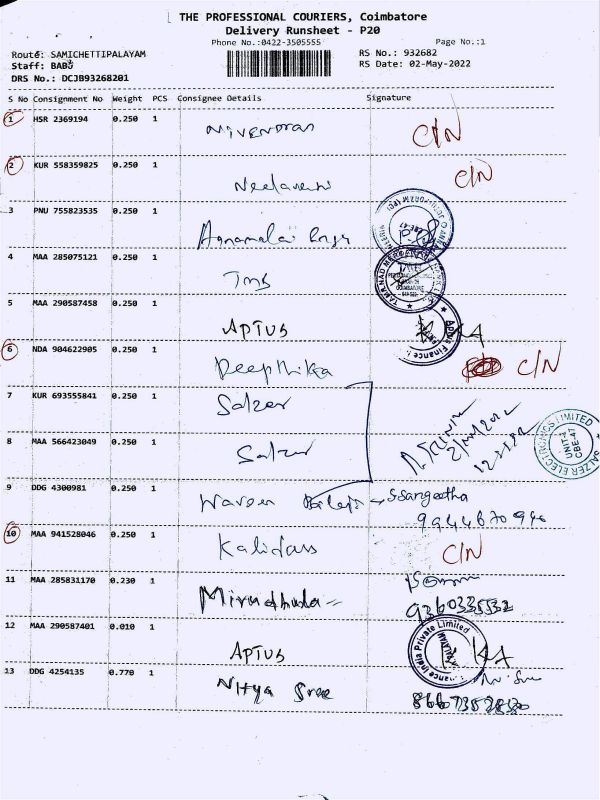 THE PROFESSIONAL COURIERS, Coimbatore
Delivery Runsheet - P20
Phone No.:0422-3505555 Page No.:1
Route: SAMICHETTIPALAYAM RS No.: 932682
Staff: BABU RS Date: 02-May-2022
DRS No.: DCJB93268201
S No Consignment No Weight PCS Consignee Details Signature
1 HSR 2369194 0.250 1 C/N
2 KUR 558359825 0.250 1 C/N
3 PNU 755823535 0.250 1 Annamalai
4 MAA 285075121 0.250 1 TMB
5 MAA 290587458 0.250 1 APTUS
6 NDA 904622905 0.250 1 Deepthika C/N
7 KUR 693555841 0.250 1 Salzer
8 MAA 566423049 0.250 1 Salzer
SALZER ELECTRONICS LIMITED
UNIT-4
CBE-47
9 DDG 4300981 0.250 1 Sangeetha
10 MAA 941528046 0.250 1 Kalidass C/N
11 MAA 285831170 0.230 1 Mirudhula
9360335532
12 MAA 290587401 0.010 1 APTUS
13 DDG 4254135 0.770 1 Nitya Sree